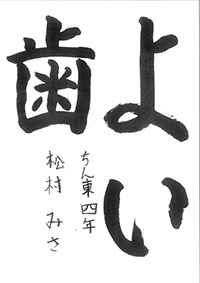 よい
歯
ちん東四年
松村みさ